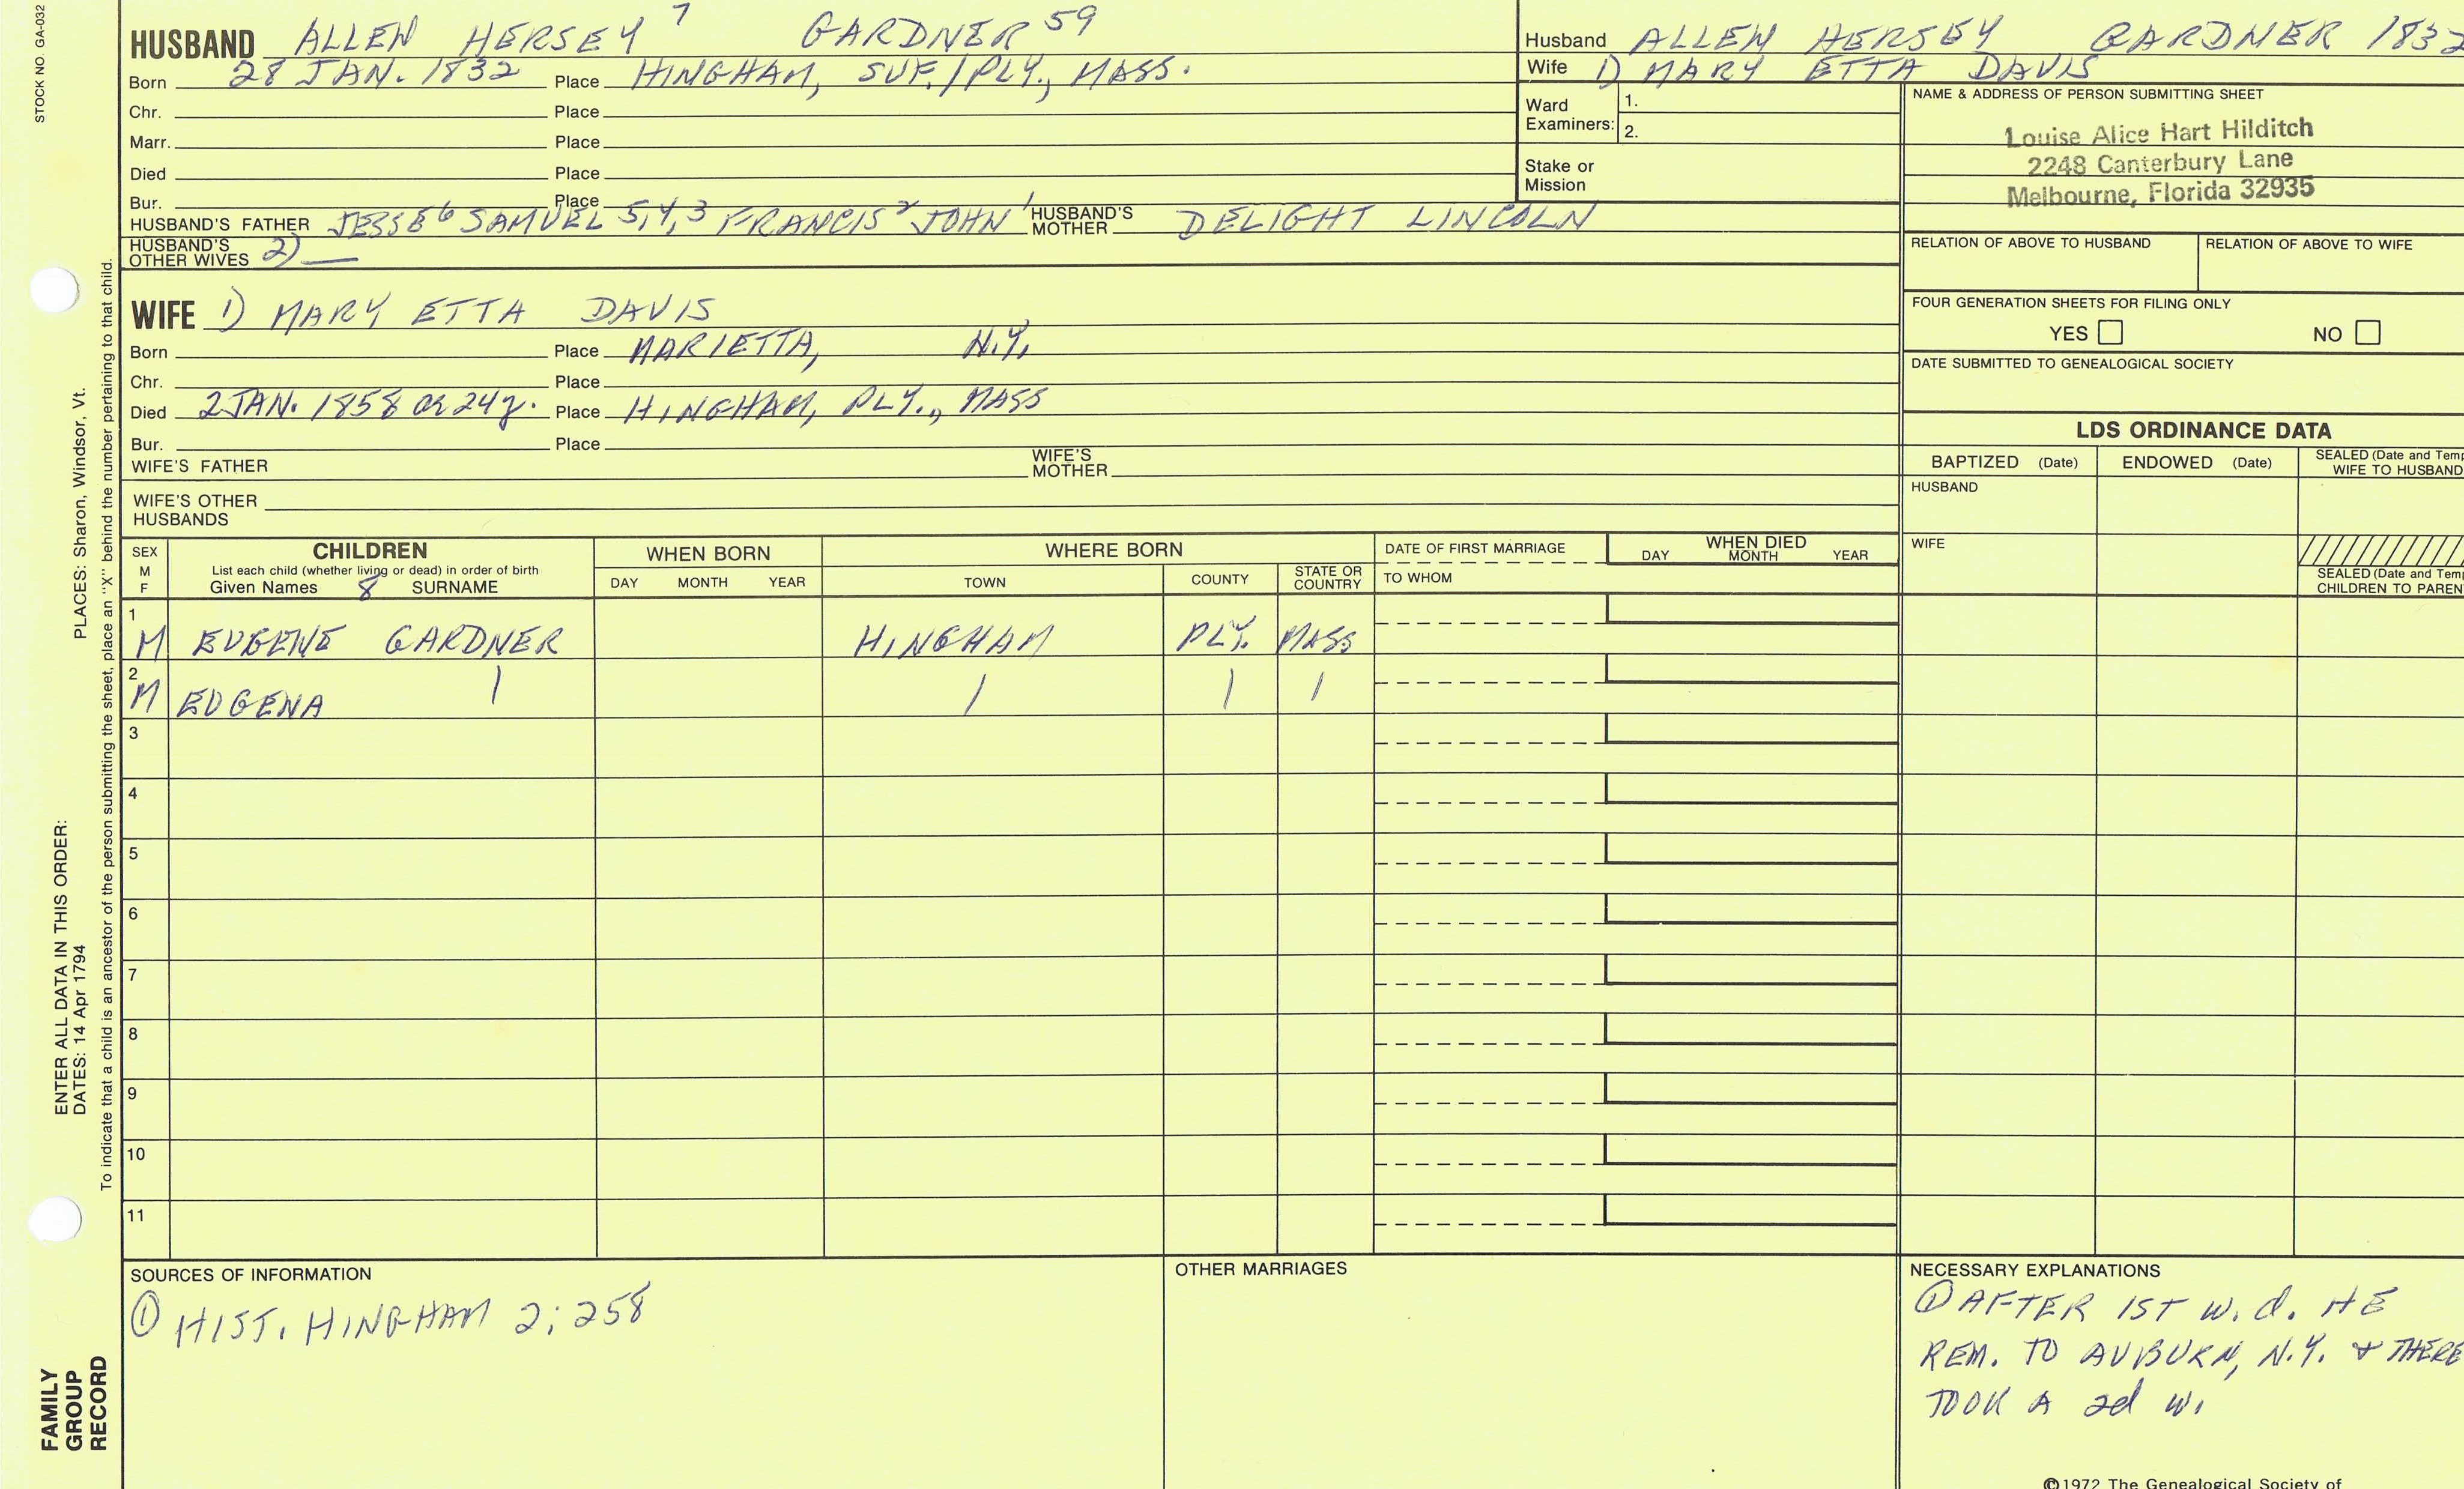 STOCK NO. GA-032
HUSBAND ALLEN HERSEY 7 GARDNER 59
Born 28 JAN. 1832 Place HINGHAM, SUF./PLY., MASS.
Chr. Place
Marr. Place
Died Place
Bur. Place
HUSBAND'S FATHER JESSE6 SAMUEL 5,4,3 FRANCIS2 JOHN1 HUSBAND'S MOTHER DELIGHT LINCOLN
HUSBAND'S OTHER WIVES 2) —
Husband ALLEN HERSEY GARDNER 1832
Wife 1) MARY ETTA DAVIS
Ward Examiners: 1.
2.
Stake or Mission
NAME & ADDRESS OF PERSON SUBMITTING SHEET
Louise Alice Hart Hilditch
2248 Canterbury Lane
Melbourne, Florida 32935
RELATION OF ABOVE TO HUSBAND RELATION OF ABOVE TO WIFE
FOUR GENERATION SHEETS FOR FILING ONLY
YES NO
DATE SUBMITTED TO GENEALOGICAL SOCIETY
WIFE 1) MARY ETTA DAVIS
Born Place MARIETTA, N.Y.
Chr. Place
Died 2 JAN. 1858 OR 24y. Place HINGHAM, PLY., MASS
Bur. Place
WIFE'S FATHER WIFE'S MOTHER
WIFE'S OTHER HUSBANDS
LDS ORDINANCE DATA
BAPTIZED (Date) ENDOWED (Date) SEALED (Date and Temp
WIFE TO HUSBAND
HUSBAND
WIFE
SEALED (Date and Temp
CHILDREN TO PAREN
SEX M F
CHILDREN
List each child (whether living or dead) in order of birth
Given Names 8 SURNAME
WHEN BORN
DAY MONTH YEAR
WHERE BORN
TOWN COUNTY STATE OR COUNTRY
DATE OF FIRST MARRIAGE
TO WHOM
WHEN DIED
DAY MONTH YEAR
1 M EUGENE GARDNER HINGHAM PLY. MASS
2 M EUGENA | | | |
3
4
5
6
7
8
9
10
11
SOURCES OF INFORMATION
① HIST. HINGHAM 2; 258
OTHER MARRIAGES
NECESSARY EXPLANATIONS
① AFTER 1ST W. d. HE
REM. TO AUBURN, N.Y. & THERE
TOOK A 2d W.
©1972 The Genealogical Society of
ENTER ALL DATA IN THIS ORDER:
DATES: 14 Apr 1794 PLACES: Sharon, Windsor, Vt.
To indicate that a child is an ancestor of the person submitting the sheet, place an "X" behind the number pertaining to that child.
FAMILY
GROUP
RECORD